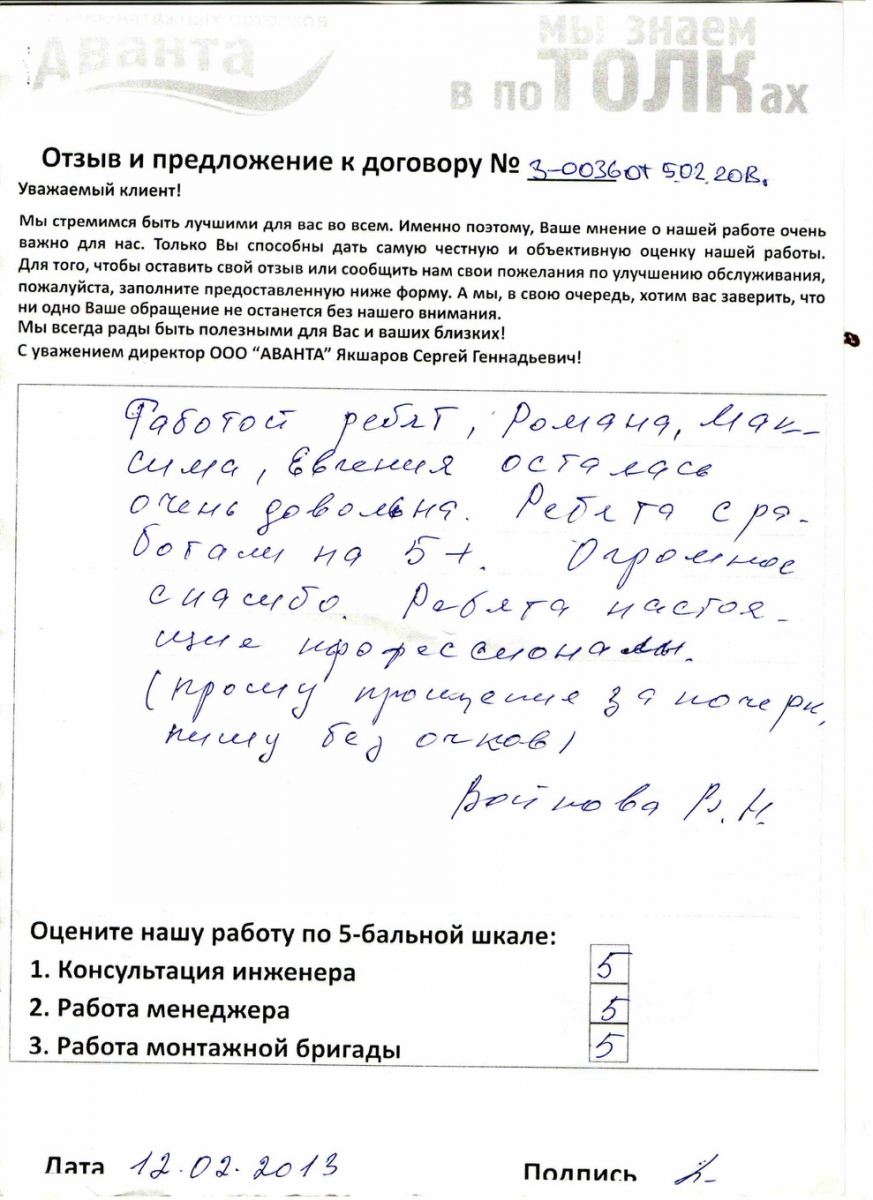 аванта
мы знаем
в поТОЛКах
Отзыв и предложение к договору № 3-0036 от 5.02.2013.
Уважаемый клиент!
Мы стремимся быть лучшими для вас во всем. Именно поэтому, Ваше мнение о нашей работе очень
важно для нас. Только Вы способны дать самую честную и объективную оценку нашей работы.
Для того, чтобы оставить свой отзыв или сообщить нам свои пожелания по улучшению обслуживания,
пожалуйста, заполните предоставленную ниже форму. А мы, в свою очередь, хотим вас заверить, что
ни одно Ваше обращение не останется без нашего внимания.
Мы всегда рады быть полезными для Вас и ваших близких!
С уважением директор ООО “АВАНТА” Якшаров Сергей Геннадьевич!
Работой ребят, Романа, Мак-
сима, Евгения осталась
очень довольна. Ребята сра-
ботали на 5+. Огромное
спасибо. Ребята настоя-
щие профессионалы.
(прошу прощения за почерк,
пишу без очков)
Войнова В.Н.
Оцените нашу работу по 5-бальной шкале:
1. Консультация инженера 5
2. Работа менеджера 5
3. Работа монтажной бригады 5
Дата 12.02.2013 Подпись